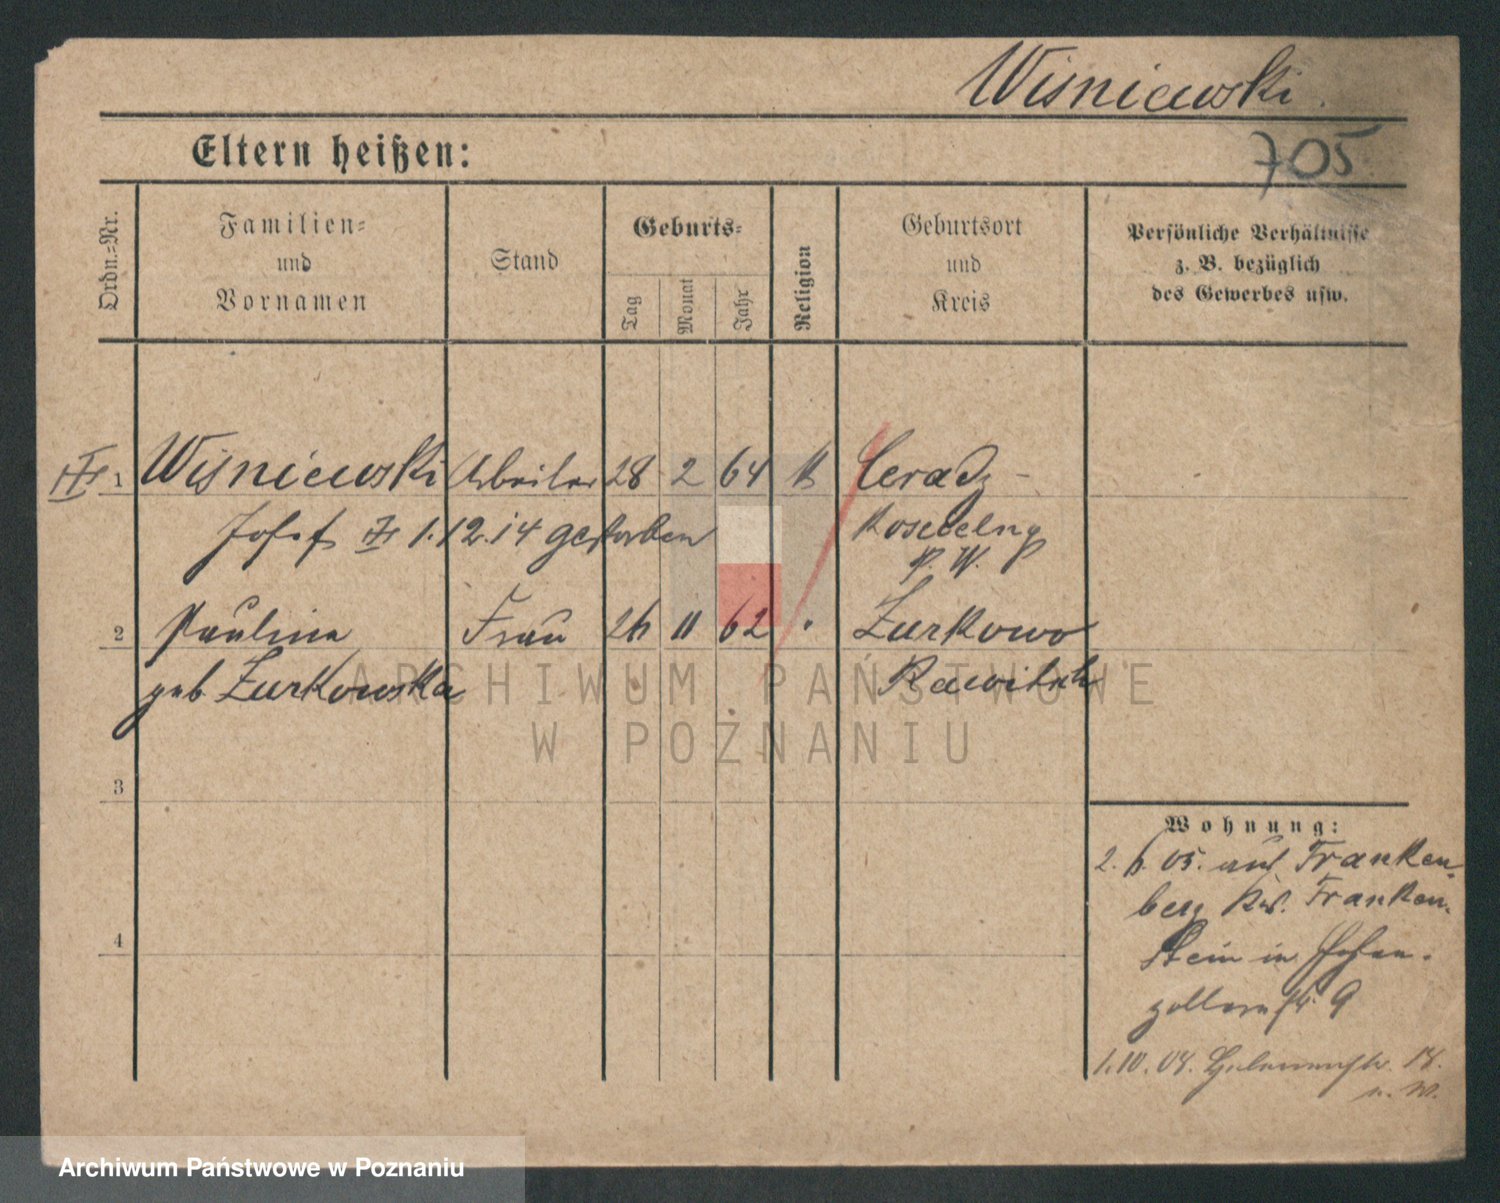 Wisniewski.
705
Eltern heißen:
Ordn.-Nr.
Familien-
und
Vornamen
Stand
Geburts-
Tag
Monat
Jahr
Religion
Geburtsort
und
Kreis
Persönliche Verhältnisse
z. B. bezüglich
des Gewerbes usw.
1 Wisniewski Arbeiter 28 2 64 k Ceradz-
Josef 1.12.14 gestorben
P. W.
2 Paulina Frau 26 11 62 " Zurkowo
geb. Zurkowska Rawitsch
3
4
Wohnung:
2.6.05. aus Franken-
berg Kr. Franken-
stein in Hohen-
zollernstr. 9
1.10.08. 18.
ARCHIWUM PAŃSTWOWE
W POZNANIU
Archiwum Państwowe w Poznaniu